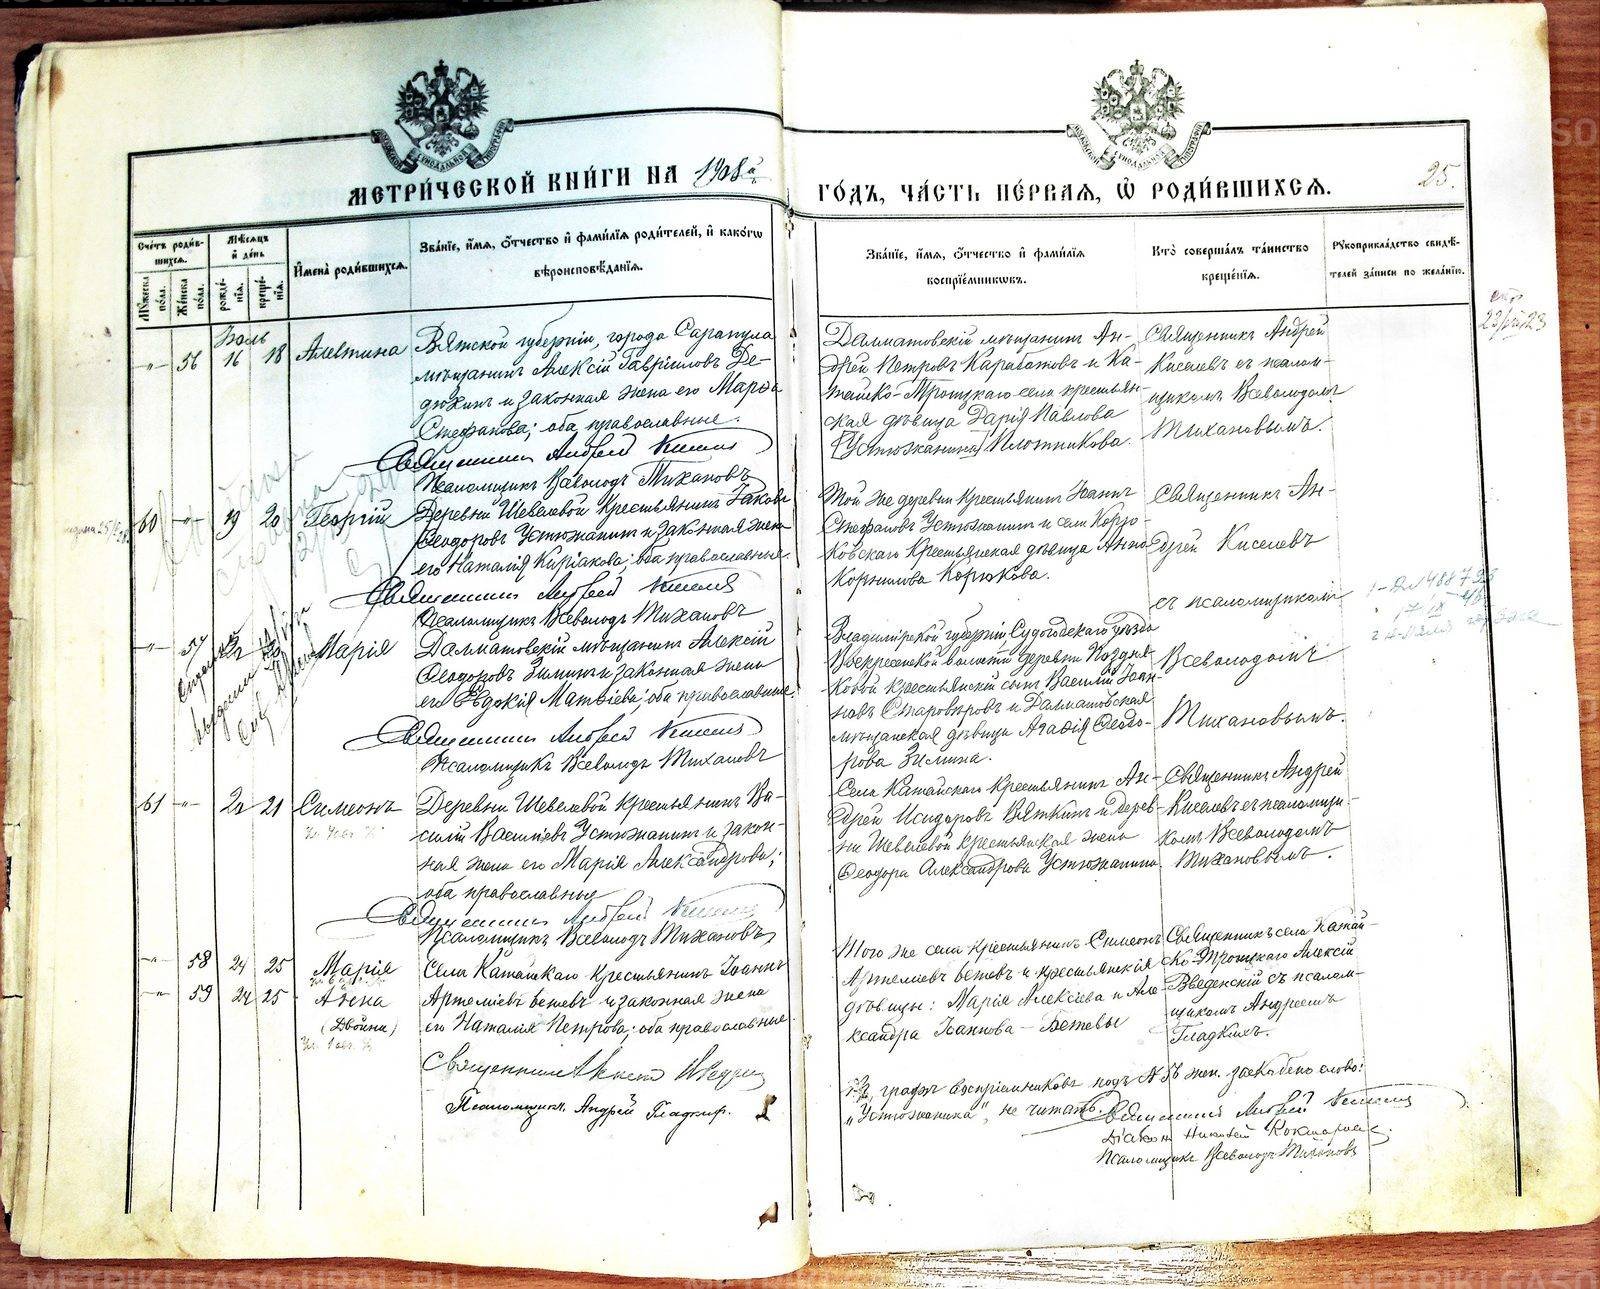 МЕТРИ́ЧЕСКОЙ КНИ́ГИ НА 1908й
ГОДЪ, ЧА́СТЬ ПЕ́РВАЯ, Ѡ҆ РОДИ́ВШИХСѦ.
25.
Сче́тъ роди́в-
шихсѧ.
Мѣ́сѧцъ
и҆ де́нь
И҆мена̀ роди́вшихсѧ.
Зва́нїе, и҆́мѧ, ѻ҆́тчество и҆ фами́лїѧ роди́телей, и҆ како́гѡ
вѣроисповѣ́данїѧ.
Мꙋ́жеска по́ла.
Же́нска по́ла.
рожде́-
нїѧ.
креще́-
нїѧ.
Зва́нїе, и҆́мѧ, ѻ҆́тчество и҆ фами́лїѧ
воспрїе́мникѡвъ.
Кто̀ соверша́лъ та́инство
креще́нїѧ.
Рꙋкоприкла́дство свидѣ́-
телей за́писи по жела́нїю.
Іюль
" 56 16 18 Алевтина
Вятской губерніи, города Сарапула
мѣщанинъ Алексій Гавриловъ Де-
дюхинъ и законная жена его Марѳа
Стефанова; оба православные.
Священникъ Андрей Киселевъ
Псаломщикъ Всеволодъ Тихановъ
Далматовскій мѣщанинъ Ан-
дрей Петровъ Карабатовъ и Ка-
тайско-Троицкаго села крестьян-
ская дѣвица Дарія Павлова
(Устюжанина) Плотникова.
Священникъ Андрей
Киселевъ съ псалом-
щикомъ Всеволодомъ
Тихановымъ.
60 " 19 20 Георгій
Деревни Шевелевой крестьянинъ Іаковъ
Ѳеодоровъ Устюжанинъ и законная жена
его Наталія Киріакова; оба православные.
Священникъ Андрей Киселевъ
Псаломщикъ Всеволодъ Тихановъ
Той же деревни крестьянинъ Іоаннъ
Стефановъ Устюжанинъ и села Корю-
ковскаго крестьянская дѣвица Анна
Корнилова Корюкова.
Священникъ Ан-
дрей Киселевъ
съ псаломщикомъ
Всеволодомъ
Тихановымъ.
" 57 Марія
Далматовскій мѣщанинъ Алексій
Ѳеодоровъ Зиминъ и законная жена
его Евдокія Матѳіева; оба православные.
Священникъ Андрей Киселевъ
Псаломщикъ Всеволодъ Тихановъ
Владимірской губерніи Судогодскаго уѣзда
Воскресенской волости деревни Поздня-
ковой крестьянскій сынъ Василій Іоан-
новъ Старовѣровъ и Далматовская
мѣщанская дѣвица Агаѳія Ѳеодо-
рова Зимина.
61 " 20 21 Симеонъ
Деревни Шевелевой крестьянинъ Ва-
силій Васильевъ Устюжанинъ и закон-
ная жена его Марія Александрова;
оба православные
Священникъ Андрей Киселевъ
Псаломщикъ Всеволодъ Тихановъ
Села Катайскаго крестьянинъ Ан-
дрей Исидоровъ Вяткинъ и дерев-
ни Шевелевой крестьянская жена
Ѳеодора Александрова Устюжанина
Священникъ Андрей
Киселевъ съ псаломщи-
комъ Всеволодомъ
Тихановымъ.
" 58 24 25 Марія
" 59 24 25 Анна
(Двойни)
Села Катайскаго крестьянинъ Іоаннъ
Артеміевъ Бетевъ и законная жена
его Наталія Петрова; оба православные.
Псаломщикъ Андрей Гладкихъ.
Того же села крестьянинъ Симеонъ
Артеміевъ Бетевъ и крестьянскія
дѣвицы: Марія Алексіева и Але-
ксандра Іоаннова Бетевы
Священникъ села Катай-
ско-Троицкаго Алексій
Введенскій съ псалом-
щикомъ Андреемъ
Гладкихъ.
графѣ воспріемниковъ подъ № 56 жен. доскоблено слово:
"Устюжанина", не читать.
Священникъ Андрей Киселевъ
Псаломщикъ Всеволодъ Тихановъ